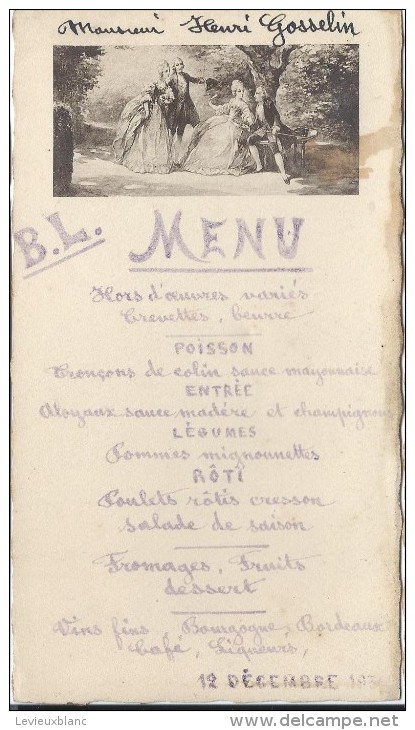 Monsieur Henri Gosselin
B.L.
MENU
Hors d'œuvres variés
Crevettes, beurre
POISSON
Tronçons de colin sauce mayonnaise
ENTRÉE
Aloyaux sauce madère et champignons
LÉGUMES
Pommes mignonnettes
RÔTI
Poulets rôtis cresson
salade de saison
Fromages, Fruits
dessert
Vins fins, Bourgogne, Bordeaux
Café, Liqueurs,
12 DÉCEMBRE
Levieuxblanc
delcampe.net